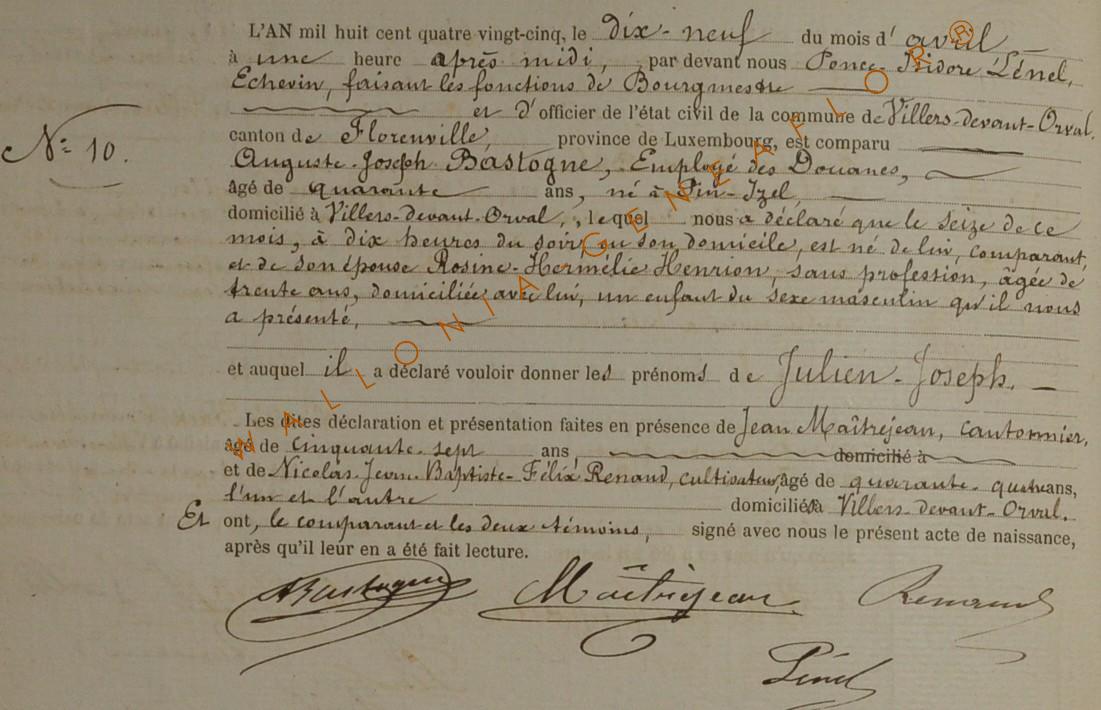 L'AN mil huit cent quatre vingt-cinq, le dix-neuf du mois d'avril
à une heure après midi, par devant nous Ponce-Isidore Lénel,
Echevin, faisant les fonctions de Bourgmestre
et d'officier de l'état civil de la commune de Villers-devant-Orval.
canton de Florenville, province de Luxembourg, est comparu
Nº 10.
Auguste-Joseph Bastogne, Employé des Douanes,
âgé de quarante ans, né à Pin-Izel
domicilié à Villers-devant-Orval, lequel nous a déclaré que le seize de ce
mois, à dix heures du soir, en son domicile, est né de lui, comparant,
et de son épouse Rosine-Hermélie Henrion, sans profession, âgée de
trente ans, domiciliée avec lui, un enfant du sexe masculin qu'il nous
a présenté,
et auquel il a déclaré vouloir donner les prénoms de Julien-Joseph.
Les dites déclaration et présentation faites en présence de Jean Maîtrejean, cantonnier,
âgé de cinquante-sept ans, domicilié à
et de Nicolas-Jean-Baptiste-Félix Renaud, cultivateur, âgé de quarante-quatre ans,
l'un et l'autre domiciliés à Villers-devant-Orval.
Et ont, le comparant et les deux témoins, signé avec nous le présent acte de naissance,
après qu'il leur en a été fait lecture.
ABastogne Maîtrejean Renaud
Lénel
WALLONIA GENEA FLOR ®